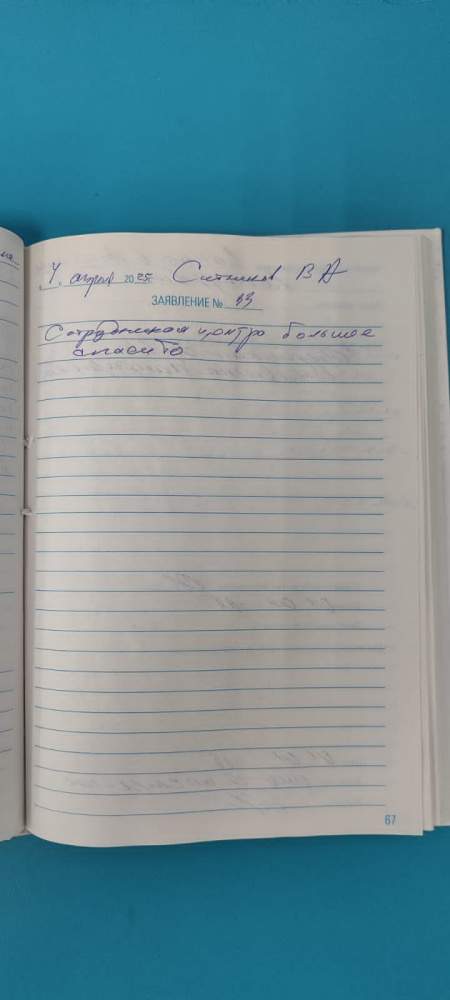 4 апреля 2025 Ситников В А
ЗАЯВЛЕНИЕ № 33
Сотрудникам центра большое
спасибо
67